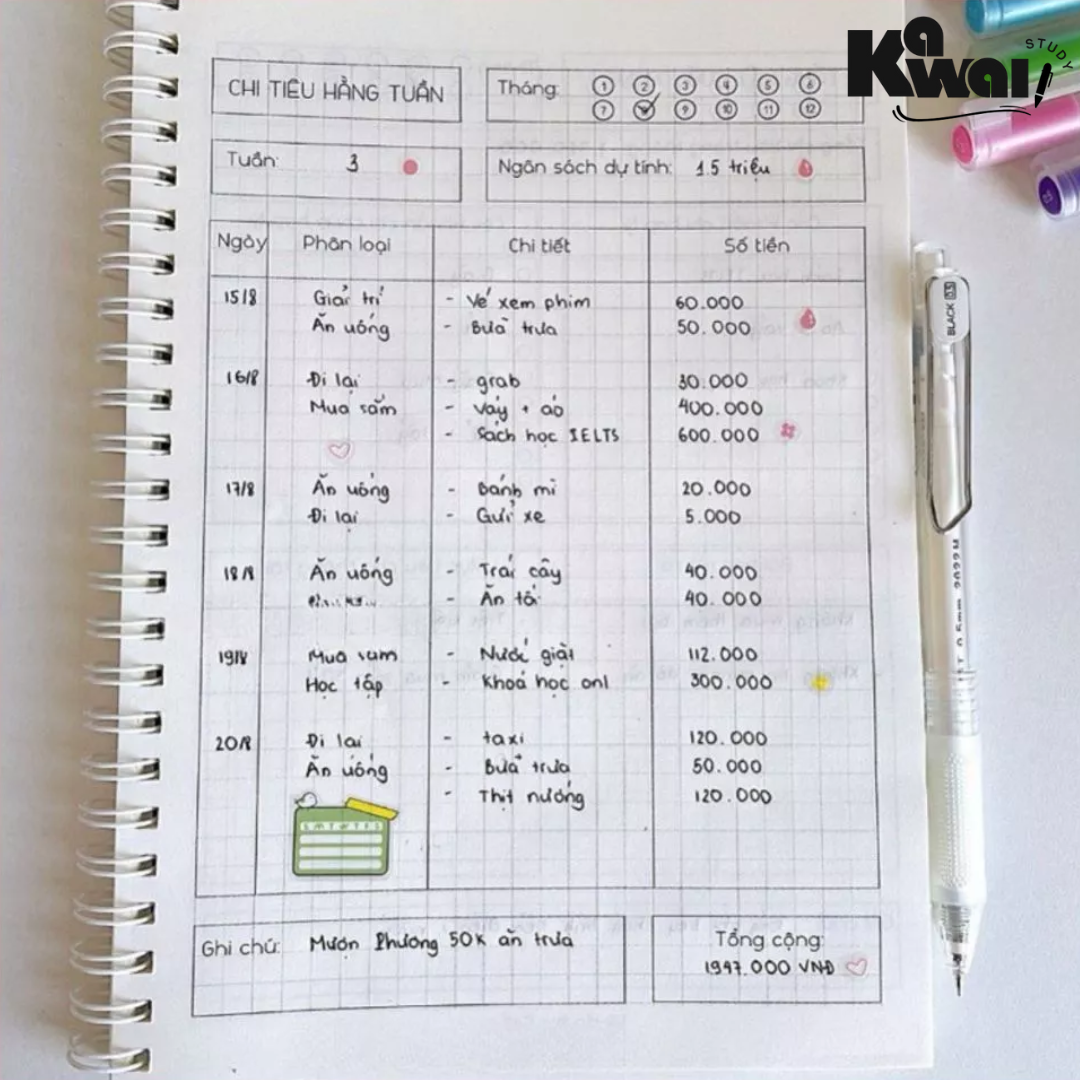 Kawai
STUDY
CHI TIÊU HẰNG TUẦN
Tháng: 1 2 3 4 5 6
7 9 10 11 12
Tuần: 3
Ngân sách dự tính: 1.5 triệu
Ngày Phân loại Chi tiết Số tiền
15/8 Giải trí - Vé xem phim 60.000
Ăn uống - Bữa trưa 50.000
16/8 Đi lại - grab 30.000
Mua sắm - Váy + áo 400.000
- Sách học IELTS 600.000
17/8 Ăn uống - Bánh mì 20.000
Đi lại - Gửi xe 5.000
18/8 Ăn uống - Trái cây 40.000
- Ăn tối 40.000
19/8 Mua sắm - Nước giặt 112.000
Học tập - Khoá học onl 300.000
20/8 Đi lại - taxi 120.000
Ăn uống - Bữa trưa 50.000
- Thịt nướng 120.000
S M T W T F S
Ghi chú: Mượn Phương 50K ăn trưa
Tổng cộng:
1947.000 VNĐ
BLACK 0.5
0.5mm 2022M